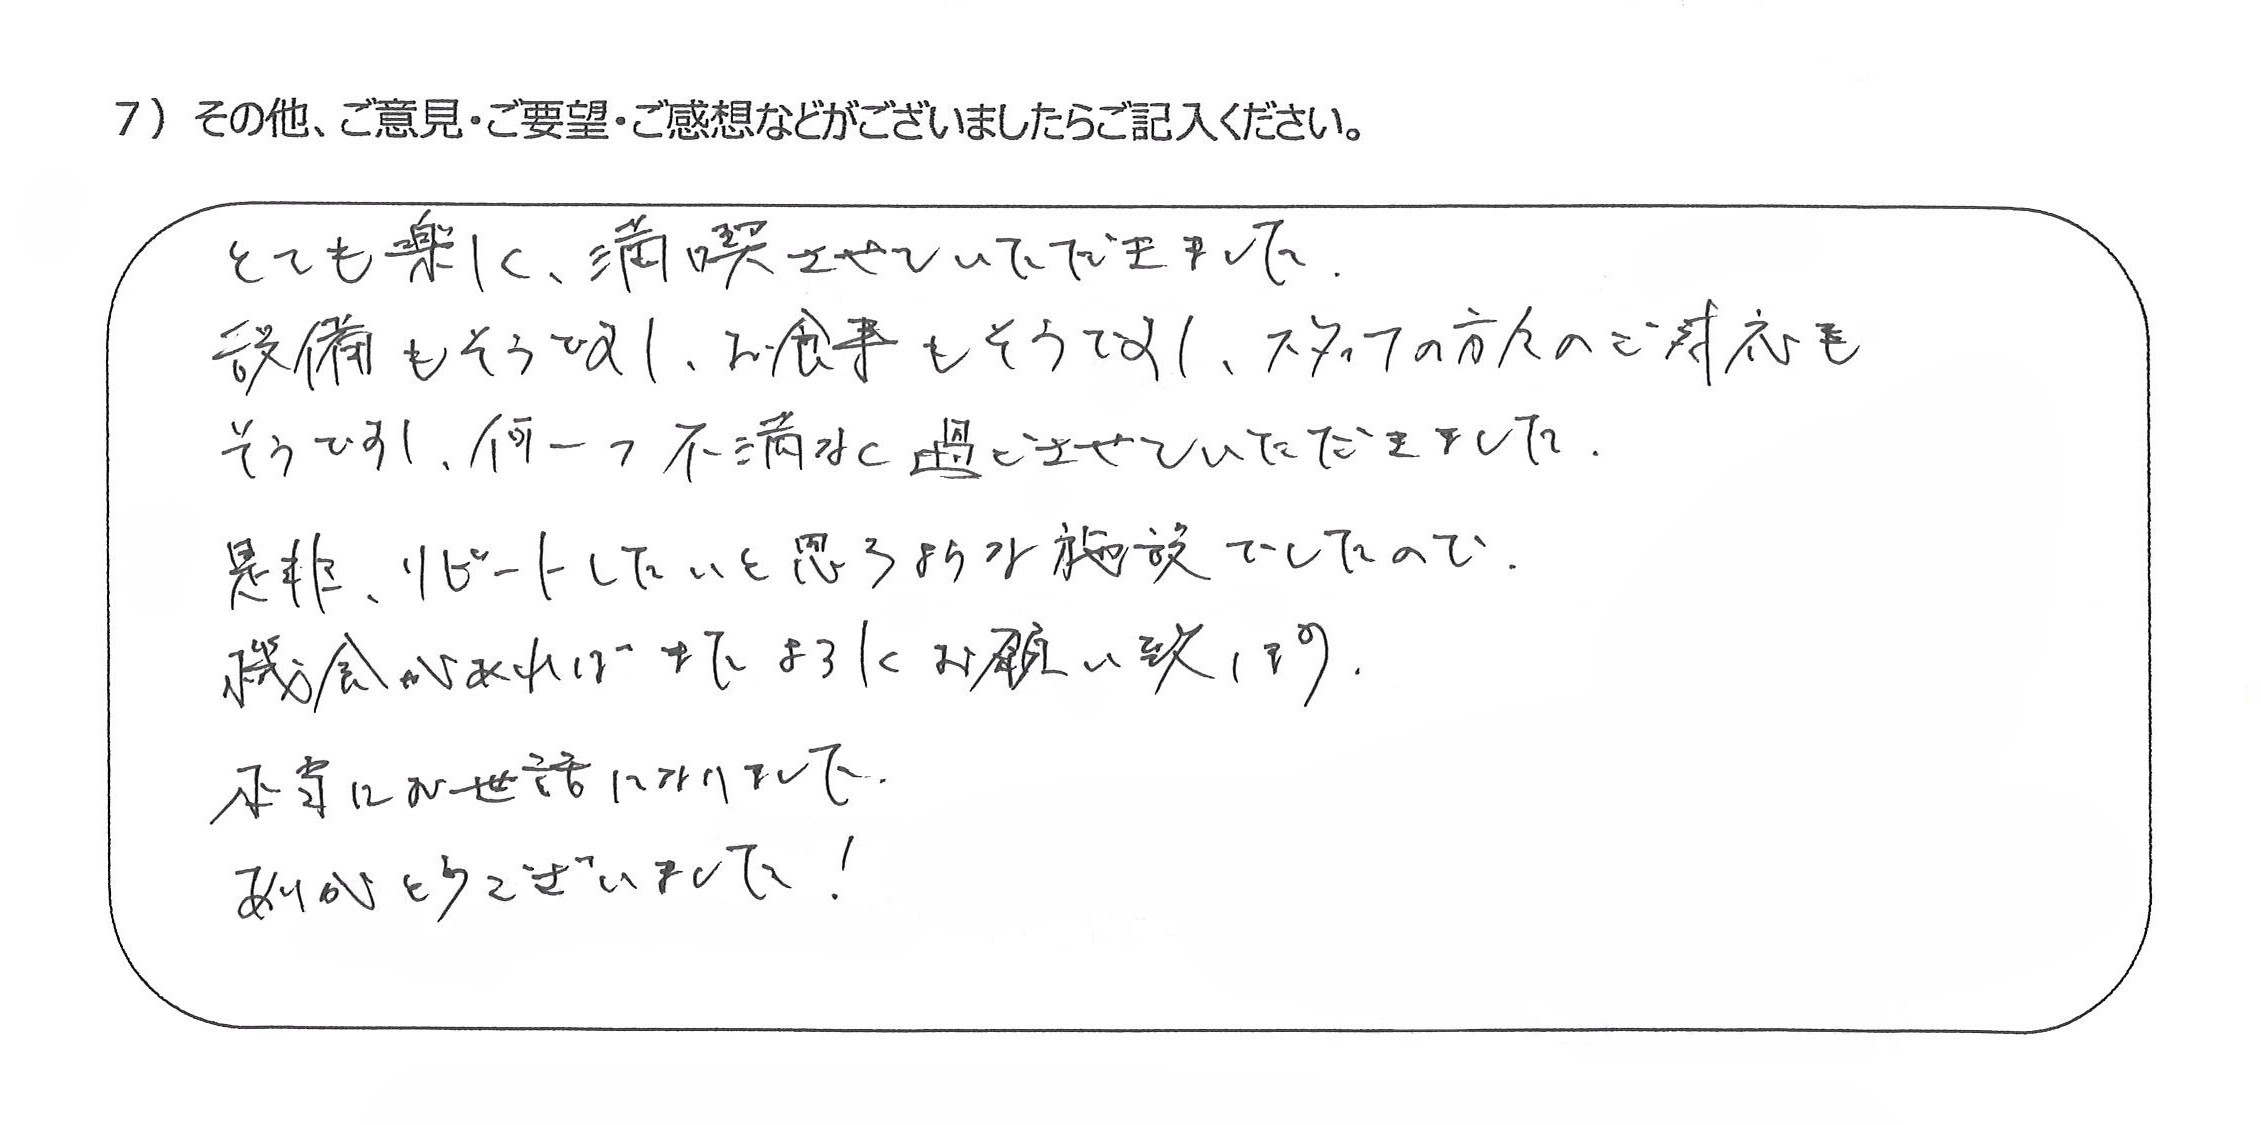 7） その他、ご意見・ご要望・ご感想などがございましたらご記入ください。
とても楽しく、満喫させていただきました.
設備もそうですし、お食事もそうですし、スタッフの方々のご対応も
そうですし、何一つ不満なく過ごさせていただきました.
是非、リピートしたいと思うような施設でしたので.
機会があればまたよろしくお願い致します.
本当にお世話になりました.
ありがとうございました!